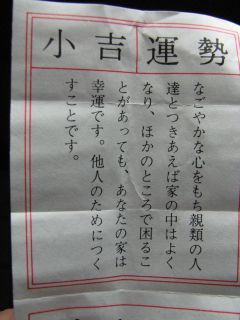 小吉 運勢
なごやかな心をもち親類の人
達とつきあえば家の中はよく
なり、ほかのところで困るこ
とがあっても、あなたの家は
幸運です。他人のためにつく
すことです。